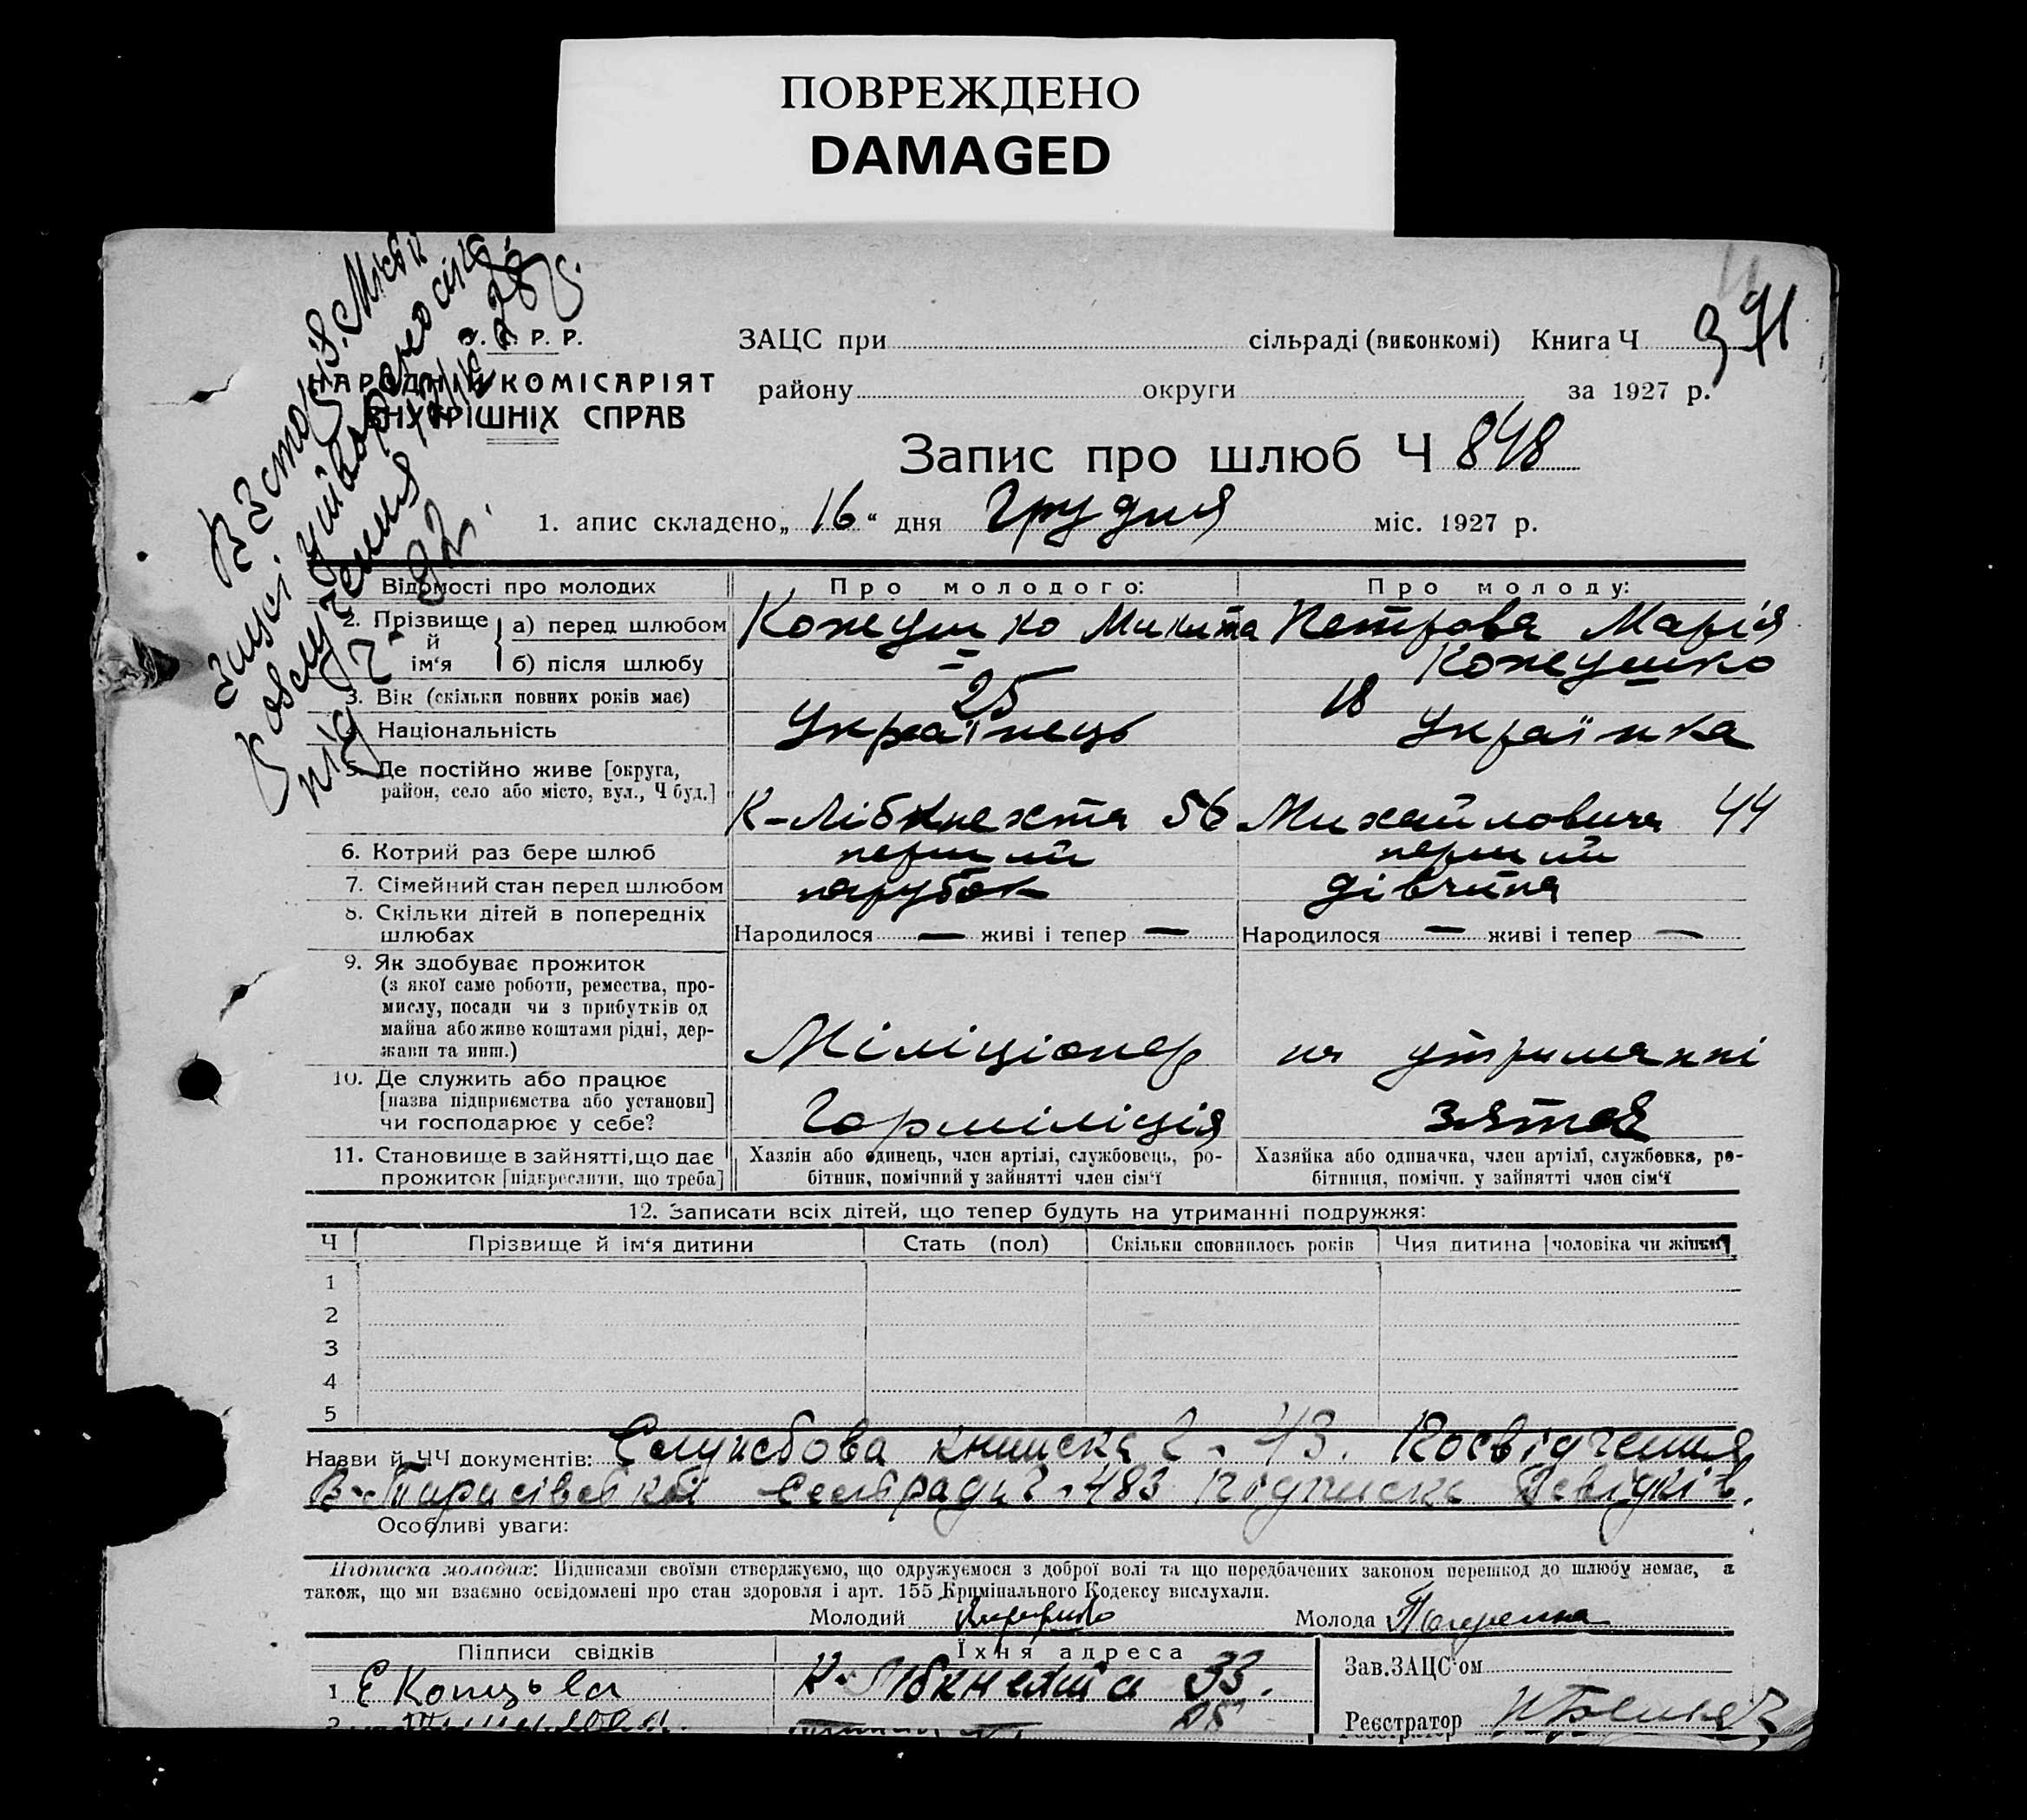 ПОВРЕЖДЕНО
DAMAGED
Р. Р.
НАРОДНІЙ КОМІСАРІЯТ
ВНУТРІШНІХ СПРАВ
ЗАЦС при сільраді (виконкомі) Книга Ч
391
району округи за 1927 р.
Запис про шлюб Ч 848
1. апис складено „ 16 “ дня Грудня міс. 1927 р.
Відомості про молодих Про молодого: Про молоду:
2. Прізвище й ім‘я а) перед шлюбом Кожушко Микита Петрова Марія
б) після шлюбу = Кожушко
3. Вік (скільки повних років має) 25 18
Національність Українець Українка
5. Де постійно живе [округа,
район, село або місто, вул., Ч буд.] К-Лібкнехта 56 Михайловича 44
6. Котрий раз бере шлюб перший перший
7. Сімейний стан перед шлюбом парубок дівчина
8. Скільки дітей в попередніх
шлюбах Народилося — живі і тепер — Народилося — живі і тепер —
9. Як здобуває прожиток
(з якої саме роботи, ремества, про-
мислу, посади чи з прибутків од
майна або живе коштами рідні, дер-
жави та инш.) Міліціонер на утриманні
10. Де служить або працює
[назва підприємства або установи]
чи господарює у себе? Горміліція зятя
11. Становище в зайнятті, що дає
прожиток [підкреслити, що треба]
Хазяін або одинець, член артілі, службовець, ро-
бітник, помічний у зайнятті член сім‘ї
Хазяйка або одиначка, член артілі, службовка, ро-
бітниця, помічн. у зайнятті член сім‘ї
12. Записати всіх дітей, що тепер будуть на утриманні подружжя:
Ч Прізвище й ім‘я дитини Стать (пол) Скільки сповнилось років Чия дитина [чоловіка чи жінки]
1
2
3
4
5
Назви й ЧЧ документів: Службова книжка Ч. 43. Посвідчення
В-Тарасівської сельради Ч. 483 Підписка свідків.
Особливі уваги:
Підписка молодих: Підписами своїми стверджуємо, що одружуємося з доброї волі та що передбачених законом перешкод до шлюбу немає, а
також, що ми взаємно освідомлені про стан здоровля і арт. 155 Кримінального Кодексу вислухали.
Молодий Молода
Підписи свідків Їхня адреса
1 К. Лібкнехта 33.
Зав. ЗАЦС‘ом
2
Реєстратор